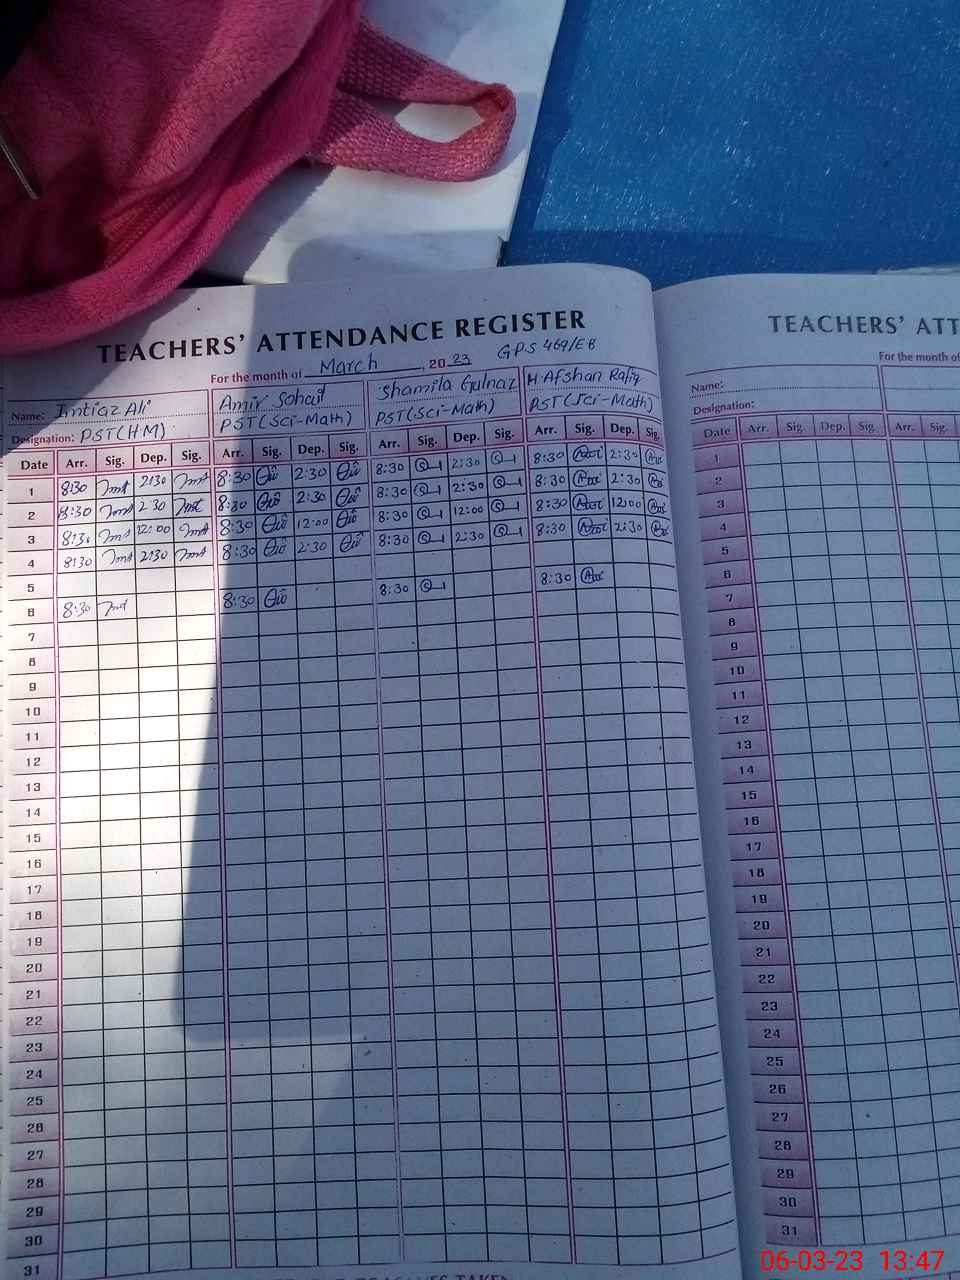 TEACHERS' ATTENDANCE REGISTER
For the month of March, 2023 GPS 469/EB
Name: Imtiaz Ali Amir Sohail Shamila Gulnaz H Afshan Rafiq
Designation: PST(HM) PST(Sci-Math) PST(Sci-Math) PST(Sci-Math)
Date Arr. Sig. Dep. Sig. Arr. Sig. Dep. Sig. Arr. Sig. Dep. Sig. Arr. Sig. Dep. Sig.
1 8:30 2:30 8:30 2:30 8:30 2:30 8:30 2:30
2 8:30 2:30 8:30 2:30 8:30 2:30 8:30 2:30
3 8:30 12:00 8:30 12:00 8:30 12:00 8:30 12:00
4 8:30 2:30 8:30 2:30 8:30 2:30 8:30 2:30
5
6 8:30 8:30 8:30 8:30
7
8
9
10
11
12
13
14
15
16
17
18
19
20
21
22
23
24
25
26
27
28
29
30
31
TEACHERS' ATT
For the month of
Name:
Designation:
Date Arr. Sig. Dep. Sig. Arr. Sig.
1
2
3
4
5
6
7
8
9
10
11
12
13
14
15
16
17
18
19
20
21
22
23
24
25
26
27
28
29
30
31
06-03-23 13:47